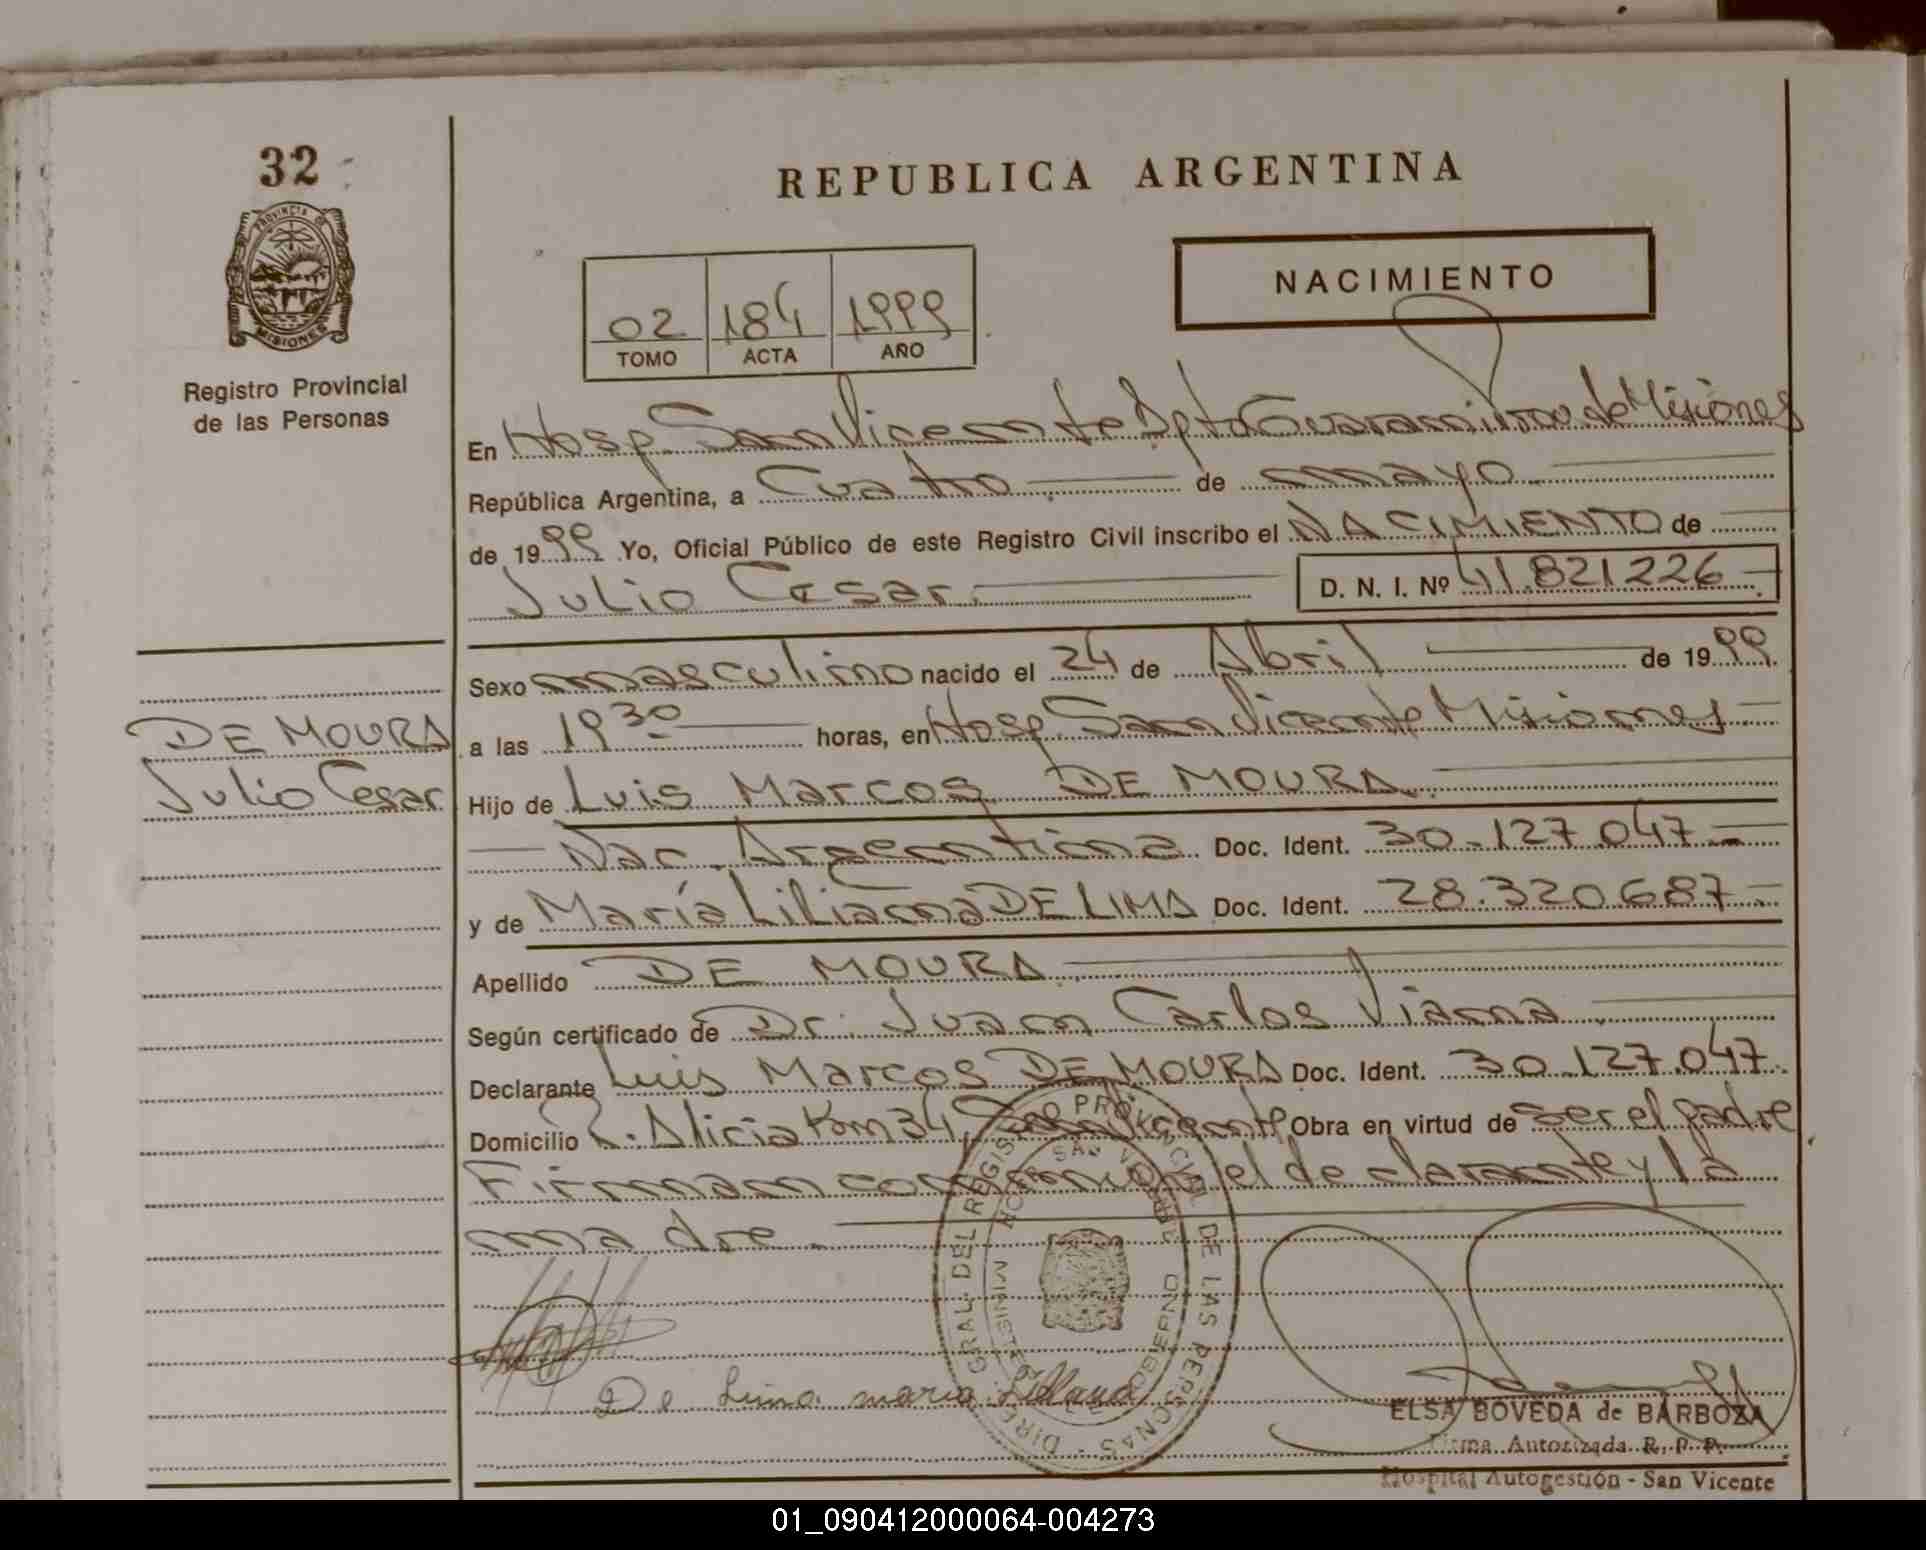 32
PROVINCIA DE
MISIONES
Registro Provincial
de las Personas
REPUBLICA ARGENTINA
NACIMIENTO
02 184 1999
TOMO ACTA AÑO
En Hosp. San Vicente Dpto Guarani Prov de Misiones
República Argentina, a Cuatro de mayo
de 1999 Yo, Oficial Público de este Registro Civil inscribo el NACIMIENTO de
Julio Cesar. D. N. I. Nº 41.821226
Sexo masculino nacido el 24 de Abril de 1999.
DE MOURA
Julio Cesar
a las 19 30 horas, en Hosp. San Vicente Misiones
Hijo de Luis Marcos DE MOURA.
Nac. Argentina Doc. Ident. 30.127.047.
y de María Liliana DE LIMA Doc. Ident. 28.320.687
Apellido DE MOURA
Según certificado de Dr. Juan Carlos Viana
Declarante Luis Marcos DE MOURA Doc. Ident. 30.127.047.
Domicilio C. Alicia Km 34, San Vicente Obra en virtud de ser el padre
Firman conmigo, el declarante y la
madre.
DIRE. GRAL. DEL REGIS. PROVINCIAL DE LAS PERSONAS
De Lima maria Liliana
ELSA BOVEDA de BARBOZA
Firma Autorizada R. P. P.
Hospital Autogestión - San Vicente
01_090412000064-004273